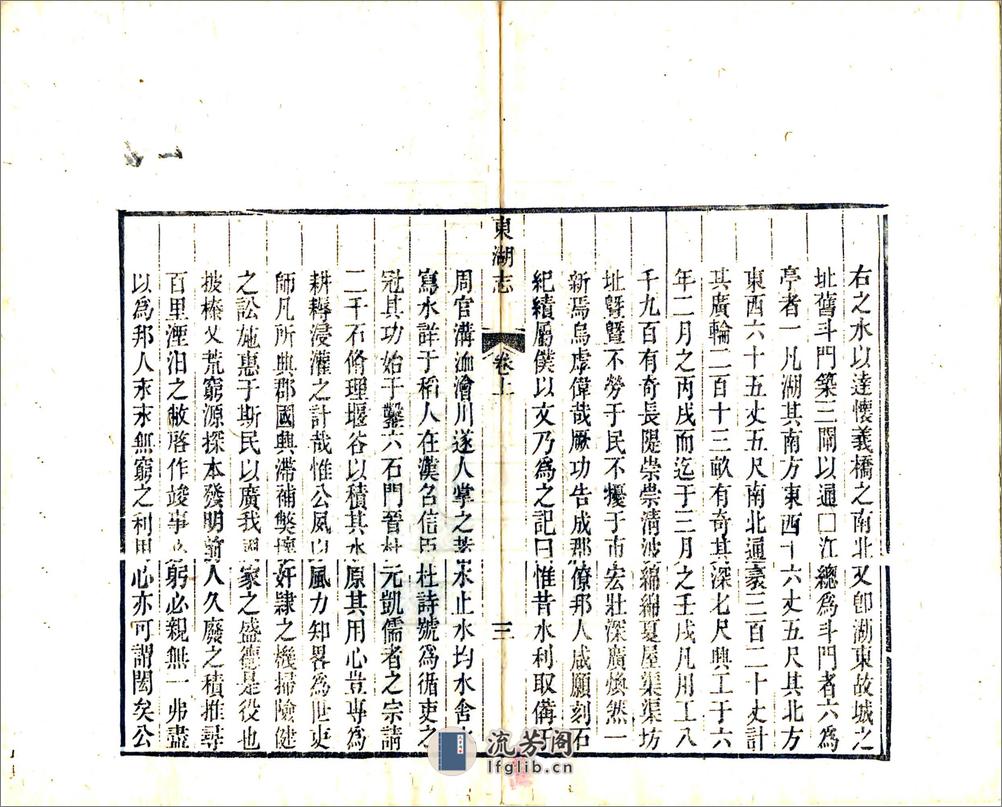 右之水以達懷義橋之南北又卽湖東故城之
址舊斗門築三閘以通□江總爲斗門者六爲
亭者一凡湖其南方東西十六丈五尺其北方
東西六十五丈五尺南北通袤三百二十丈計
其廣輪二百十三畝有奇其深七尺興工于六
年二月之丙戌而迄于三月之壬戌凡用工八
千九百有奇長隄崇崇淸波綿綿夏屋渠渠坊
址曁曁不勞于民不擾于市宏壯深廣煥然一
新焉烏虖偉哉厥功告成郡僚邦人咸願刻石
紀績屬僕以文乃爲之記曰惟昔水利取備于
東湖志 卷上 三
周官溝洫澮川遂人掌之蓄水止水均水舍水
寫水詳于稻人在漢名信臣杜詩號爲循吏之
冠其功始于鑿六石門晉杜元凱儒者之宗請
二千石脩理堰谷以積其水原其用心豈專爲
耕耨浸灌之計哉惟公風以風力知畧爲世吏
師凡所興郡國興滯補弊摧奸隷之機掃險健
之訟施惠于斯民以廣我國家之盛德是役也
披榛乂荒窮源探本發明前人久廢之積推尋
百里湮汨之敝啓作竣事躬必親無一弗盡
以爲邦人末末無窮之利用心亦可謂閎矣公
流芳閣
lfglib.cn.com